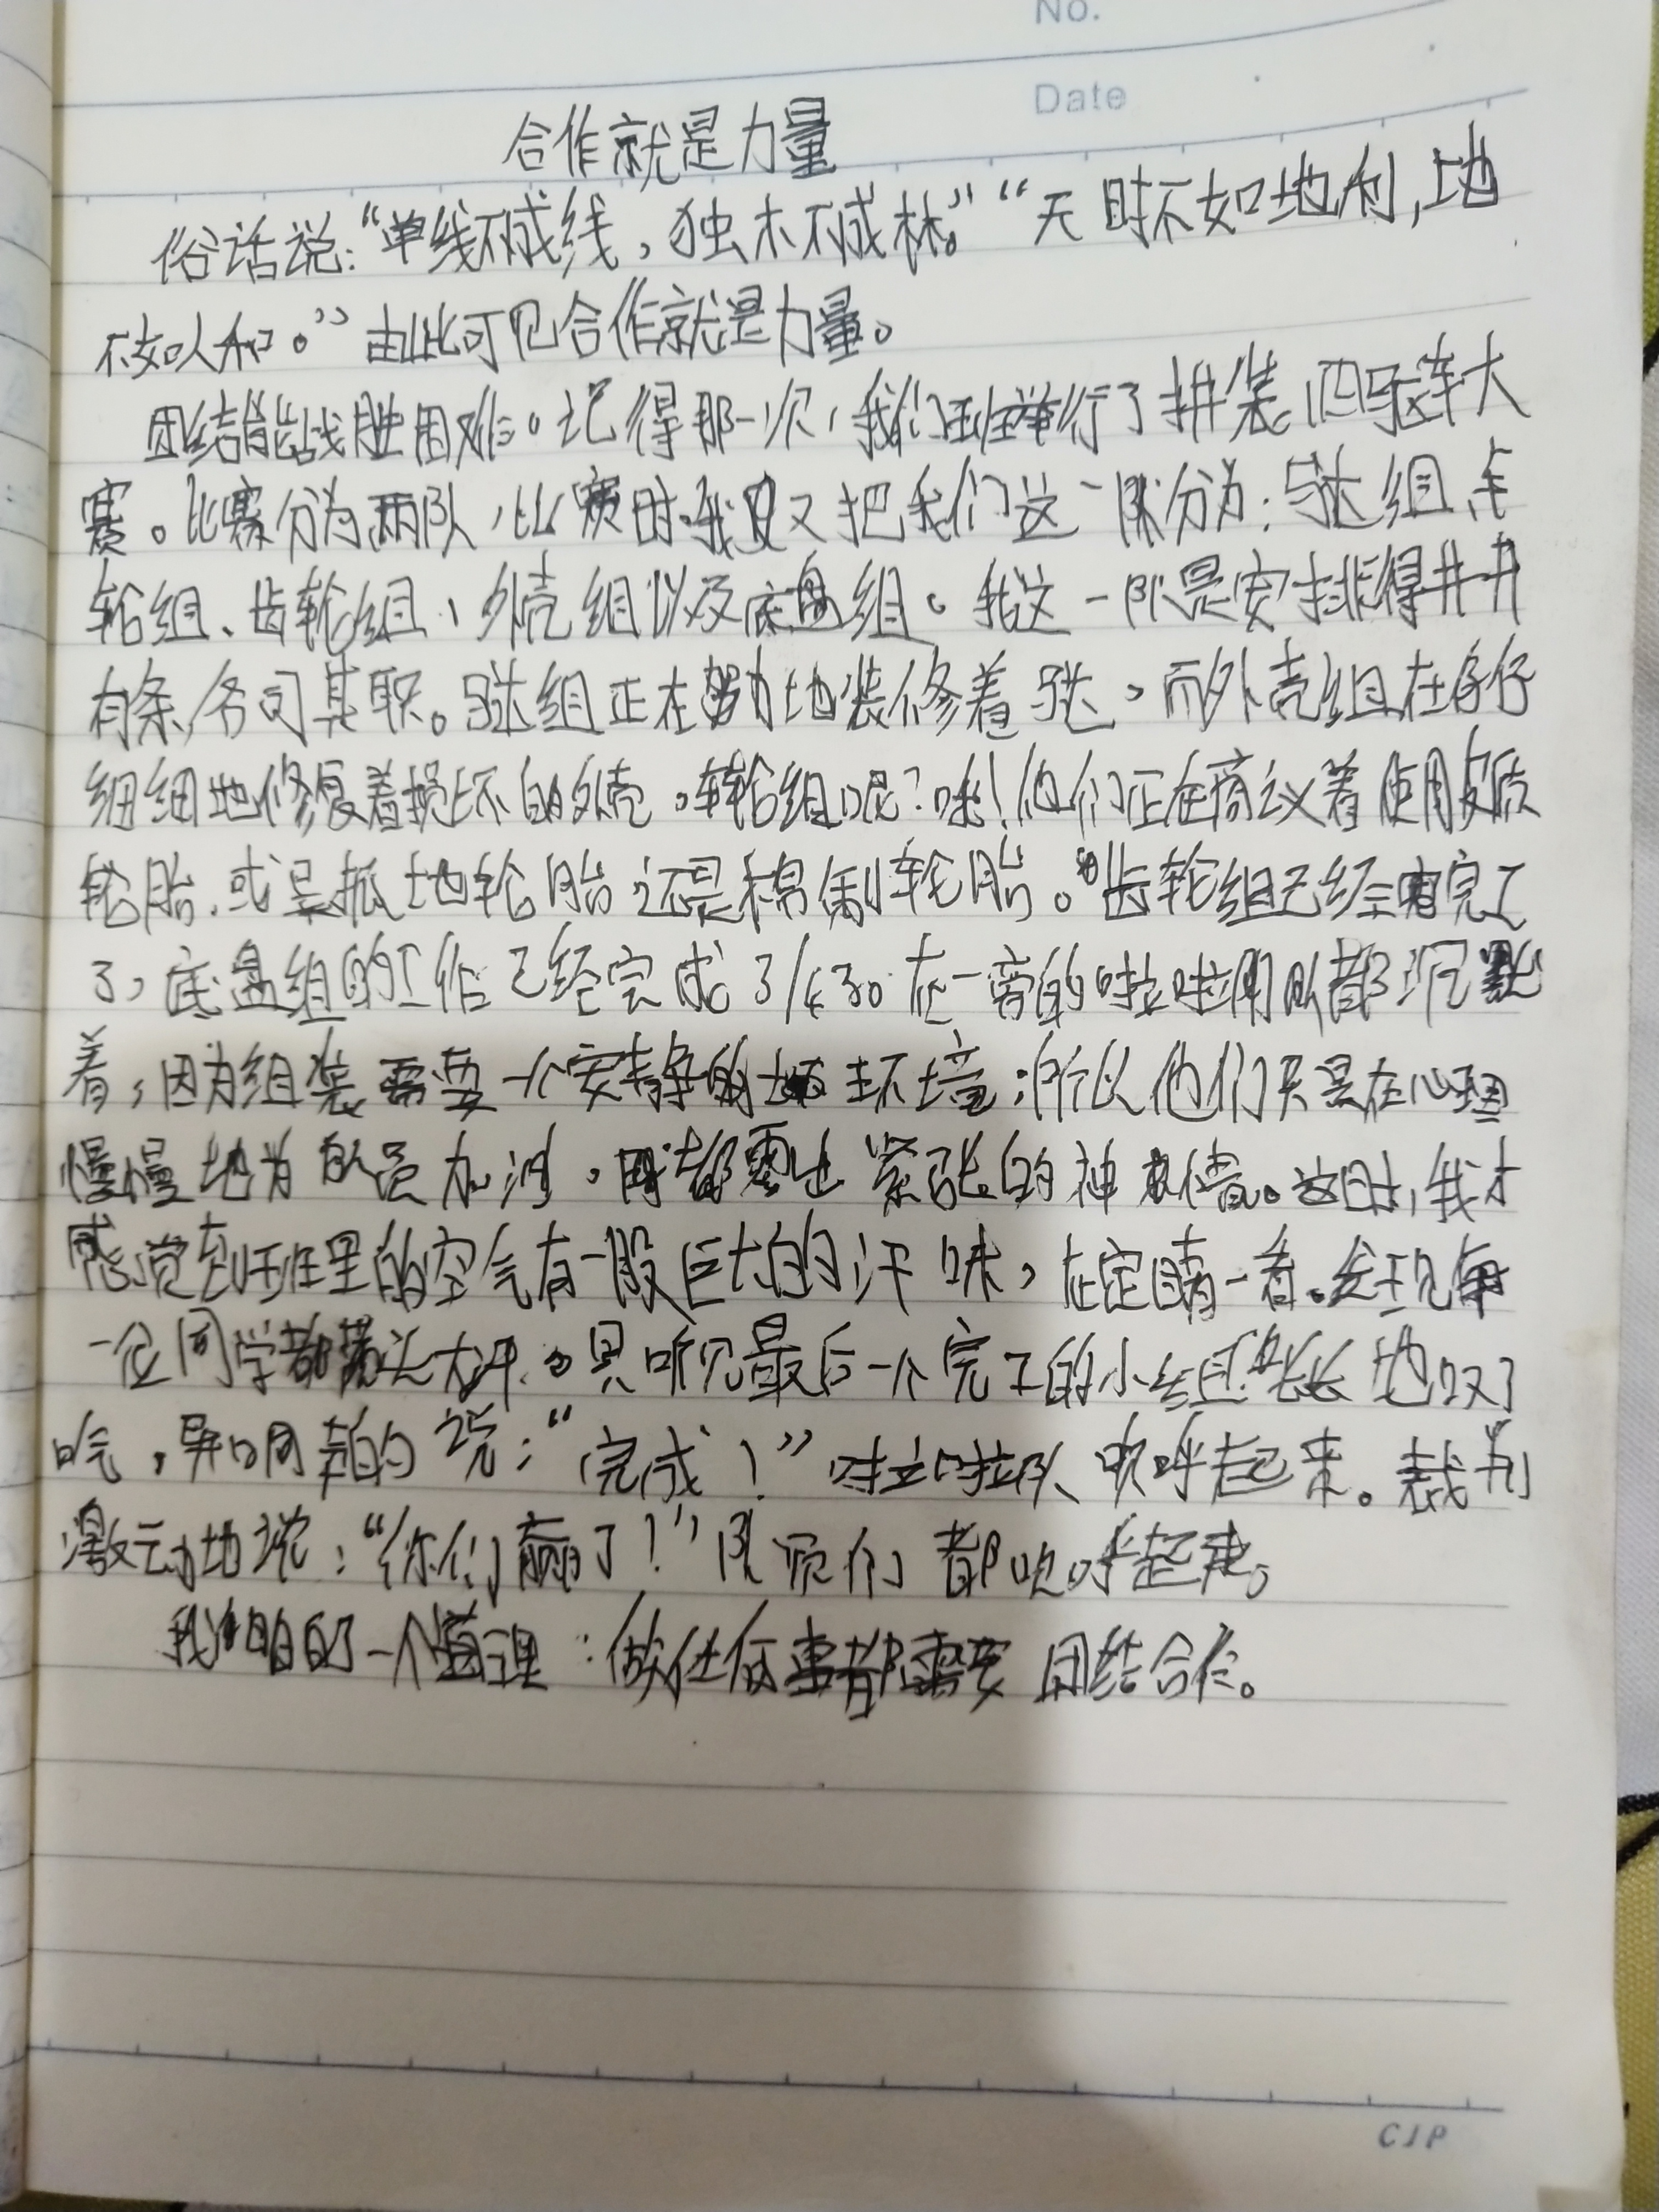 No.
Date
合作就是力量
俗话说：“单线不成线，独木不成林。”“天时不如地利，地
不如人和。”由此可见合作就是力量。
团结能战胜困难。记得那一次，我们班举行了拼装四驱车大
赛。比赛分为两队，比赛时我又把我们这一队分为：马达组、车
轮组、齿轮组、外壳组以及底盘组。我这一队是安排得井井
有条，各司其职。马达组正在努力地装修着马达，而外壳组在仔仔
细细地修复着损坏的外壳。车轮组呢？咦！他们正在商议着使用皮质
轮胎，或是抓地轮胎，还是棉制轮胎。齿轮组已经完工
了，底盘组的工作已经完成3/4了。在一旁的啦啦队都沉默
着，因为组装需要一个安静的环境，所以他们只是在心里
慢慢地为队员加油，都露出紧张的神情。这时，我才
感觉到班里的空气有一股巨大的汗味，在定睛一看。发现每
一位同学都满头大汗。只听见最后一个完工的小组长长地叹了
口气，异口同声的说：“完成！”啦啦队欢呼起来。裁判
激动地说：“你们赢了！”队员们都欢呼起来。
我明白了一个道理：做任何事都需要团结合作。
CJP